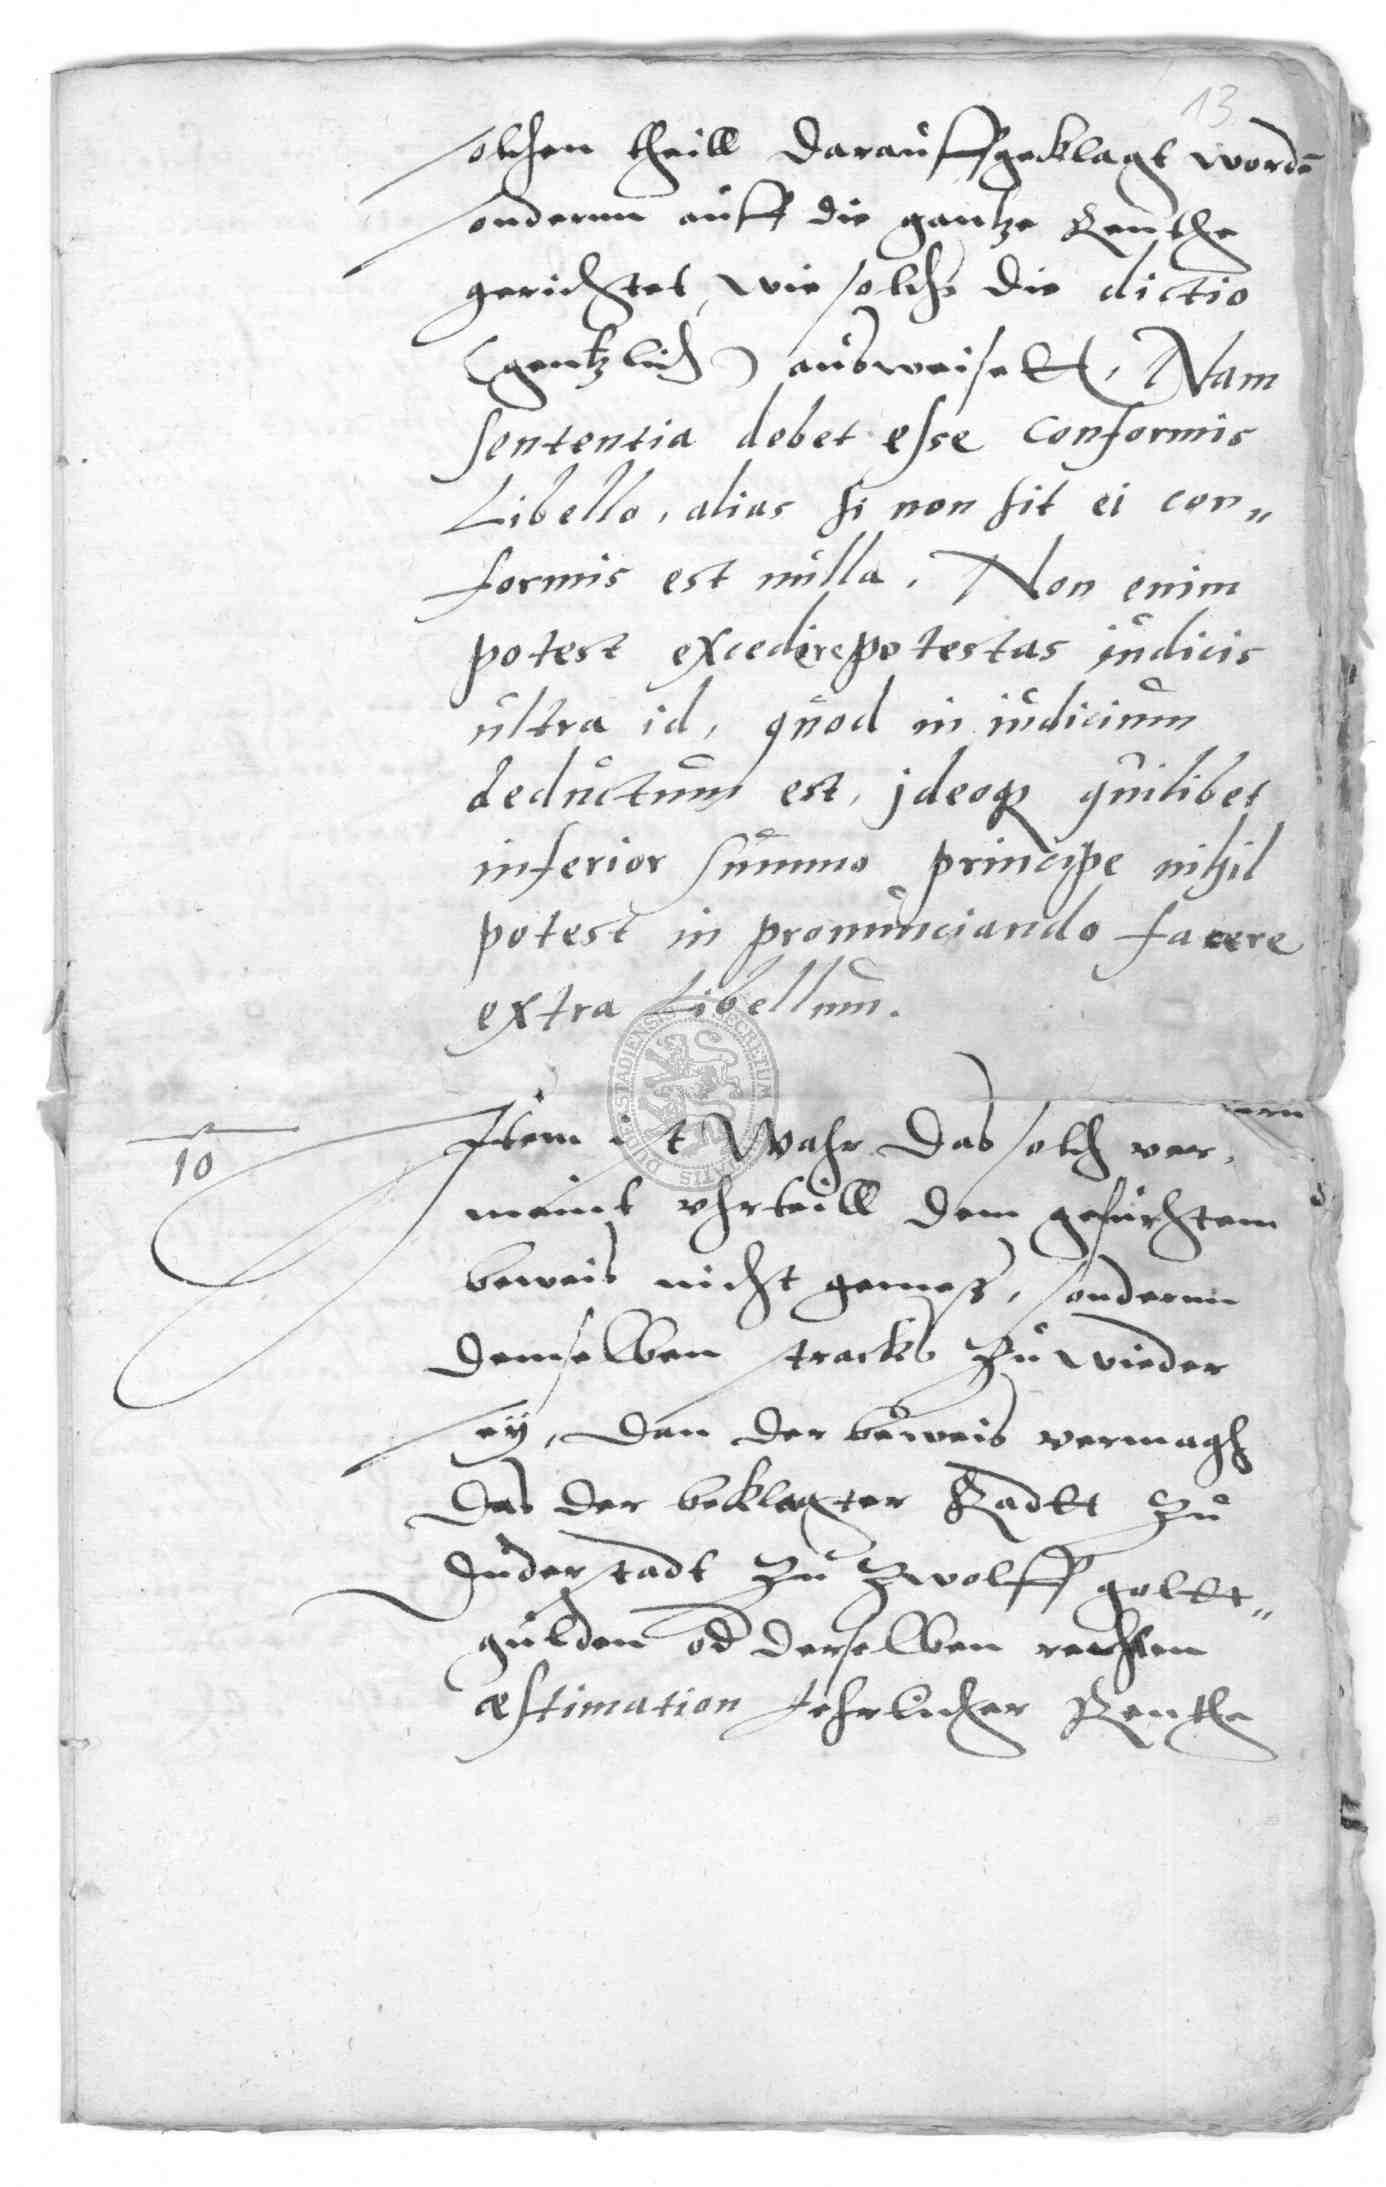 13
solchen theill darauff geklagt worden
sondernn auff die gantze Renthe
gerichtet, wie solchs die dictio
(gentzlich) ausweisett, Nam
sententia debet esse conformis
Libello, alias si non sit ei con„
formis est nulla. Non enim
potest excedere potestas iudicis
ultra id, quod in iudicium
deductum est, jdeoq quilibet
inferior summo principe nihil
potest in pronunciando facere
extra Libellum.
10
Item ist Wahr das solch ver,
meint vhrteill dem gefürhtem
beweis nicht gemeß, sondernn
demselben stracks zu wieder
sey, dan der beweis vermagh
das der beklagter Radtt zu
Duderstadt zu zwolff goltt„
gulden od derselben rechten
æstimation Jehrlicher Renthe